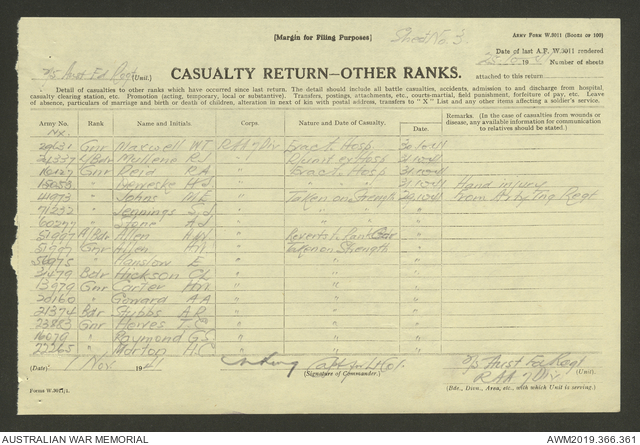 [Margin for Filing Purposes] Sheet No. 3. ARMY FORM W.3011 (BOOKS OF 100)
Date of last A.F. W.3011 rendered
Number of sheets
2/5 Aust Fd Regt (Unit.) CASUALTY RETURN—OTHER RANKS. attached to this return
Detail of casualties to other ranks which have occurred since last return. The detail should include all battle casualties, accidents, admission to and discharge from hospital,
casualty clearing station, etc. Promotion (acting, temporary, local or substantive). Transfers, postings, attachments, etc., courts-martial, field punishment, forfeiture of pay, etc. Leave
of absence, particulars of marriage and birth or death of children, alteration in next of kin with postal address, transfers to "X" List and any other items affecting a soldier's service.
Army No. Rank. Name and Initials. Corps. Nature and Date of Casualty. Date. Remarks. (In the case of casualties from wounds or disease, any available information for communication to relatives should be stated.)
NX.
Gnr Maxwell WT RAA 7 Div Evac t. Hosp 30.10.41
L/Bdr R.J. " R/unit ex Hosp 31.10.41
Gnr Reid R.A. " Evac t. Hosp 31.10.41
" H.J. " " " 31.10.41 Hand injury
" Johns M.E. " Taken on Strength from Arty Tng Regt
" Jennings S.J. " "
" Stone A.J. " "
51997 A/Bdr Allen H.M. " Reverts t.
51997 Gnr Allen H.M. " Taken on Strength
" Hanslow E " "
Bdr Hickson C.L. " "
13979 Gnr Carter H.M. " "
20160 " Goward A.A. " "
21374 Bdr Stubbs A.R. " "
Gnr Hawes T.E. " "
16079 " Raymond G.S. " "
22265 " Morton H.C. " "
(Date) 1 Nov 1941 (Signature of Commander.) 2/5 Aust Fd Regt (Unit.)
RAA 7 Div
(Bde., Divn., Area, etc., with which Unit is serving.)
AUSTRALIAN WAR MEMORIAL AWM2019.366.361